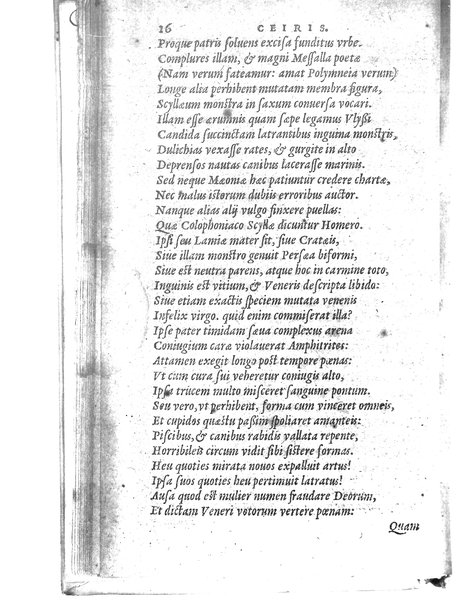 16 CEIRIS.
Proque patris soluens excisa funditus vrbe.
Complures illam, & magni Messalla poetæ
(Nam verum fateamur: amat Polymneia verum)
Longe alia perhibent mutatam membra figura,
Scyllæum monstra in saxum conuersa vocari.
Illam esse ærumnis quam sæpe legamus Vlyssi
Candida succinctam latrantibus inguina monstris,
Dulichias vexasse rates, & gurgite in alto
Deprensos nautas canibus lacerasse marinis.
Sed neque Mæoniæ hæc patiuntur credere chartæ,
Nec malus istorum dubiis erroribus auctor.
Nanque alias alij vulgo finxere puellas:
Quæ Colophoniaco Scyllæ dicuntur Homero.
Ipsi seu Lamiæ mater sit, siue Cratæis,
Siue illam monstro genuit Persæa biformi,
Siue est neutra parens, atque hoc in carmine toto,
Inguinis est vitium, & Veneris descripta libido:
Siue etiam exactis speciem mutata venenis
Infelix virgo. quid enim commiserat illa?
Ipse pater timidam sæua complexus arena
Coniugium caræ violauerat Amphitrites:
Attamen exegit longo post tempore pœnas:
Vt cum cura sui veheretur coniugis alto,
Ipsa trucem multo misceret sanguine pontum.
Seu vero, vt perhibent, forma cum vinceret omneis,
Et cupidos quæstu passim spoliaret amanteis:
Piscibus, & canibus rabidis vallata repente,
Horribileis circum vidit sibi sistere formas.
Heu quoties mirata nouos expalluit artus!
Ipsa suos quoties heu pertimuit latratus!
Ausa quod est mulier numen fraudare Deorum,
Et dictam Veneri votorum vertere pœnam:
Quam